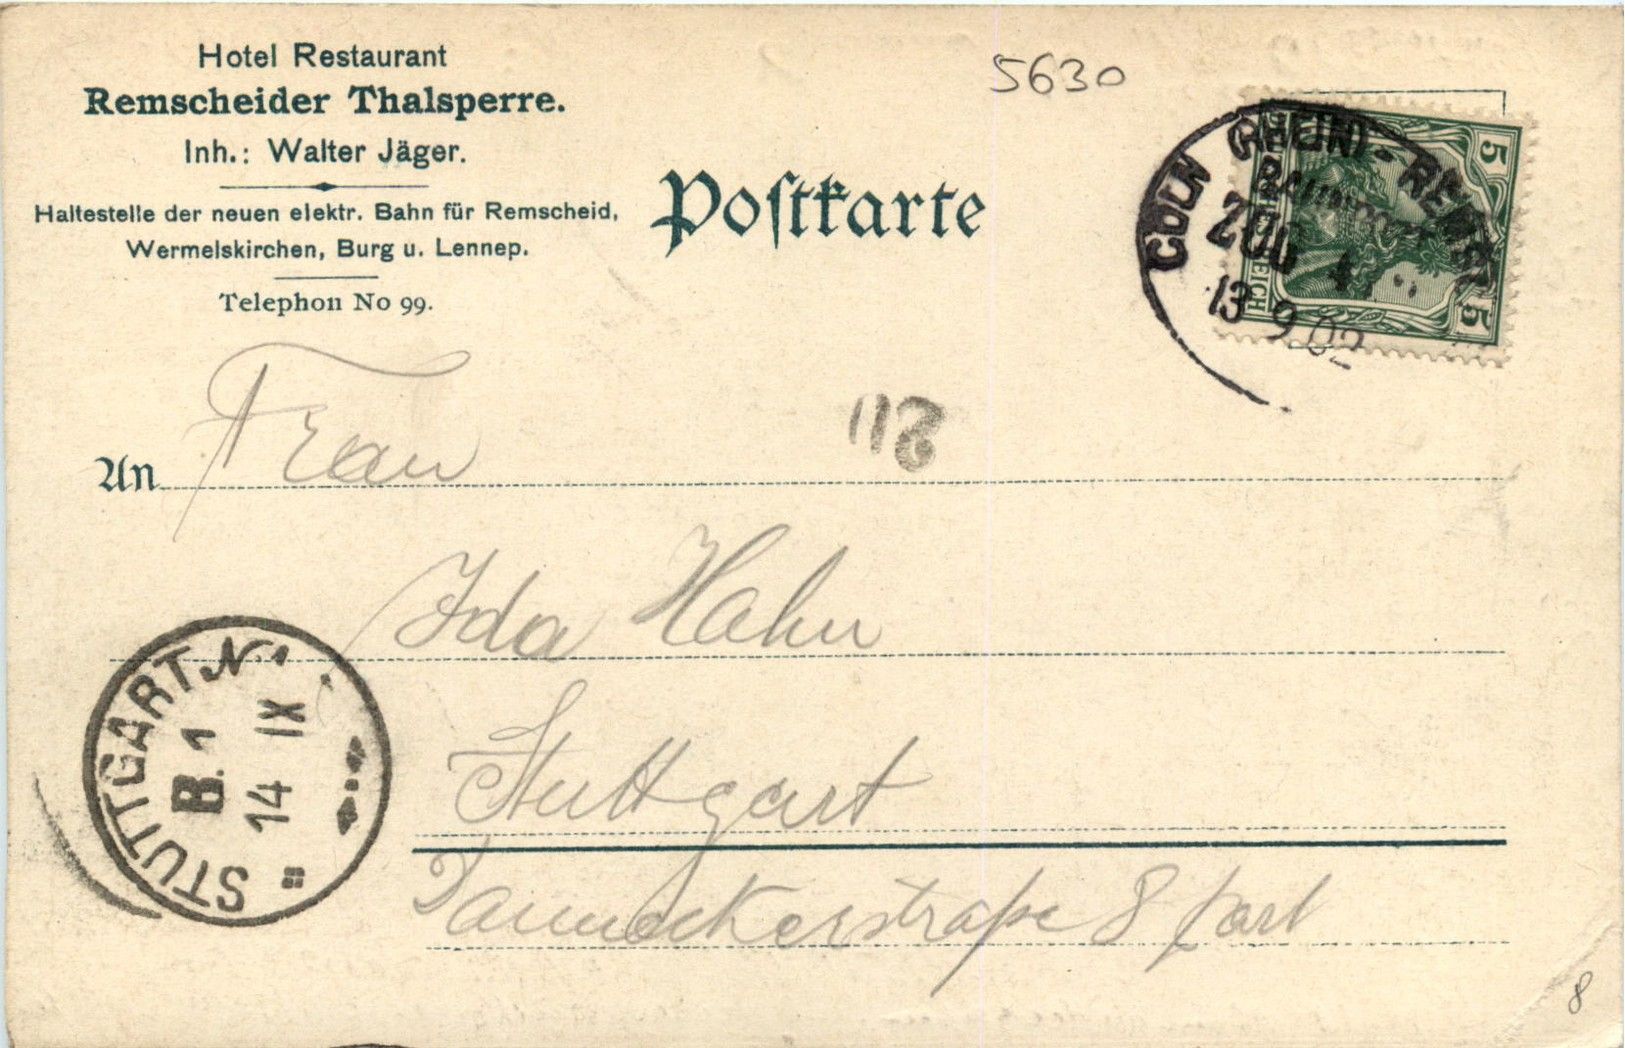 Hotel Restaurant
Remscheider Thalsperre.
Inh.: Walter Jäger.
Haltestelle der neuen elektr. Bahn für Remscheid,
Wermelskirchen, Burg u. Lennep.
Telephon No 99.
5630
Postkarte
5
5
REICH
CÖLN (RHEIN)-REMSCH
BAHNPOST
ZUG 4
13 9.02
118
An Frau
Ida Hahn
Stuttgart
Danneckerstraße 8 part
STUTTGART N.
B.1
14 IX
8